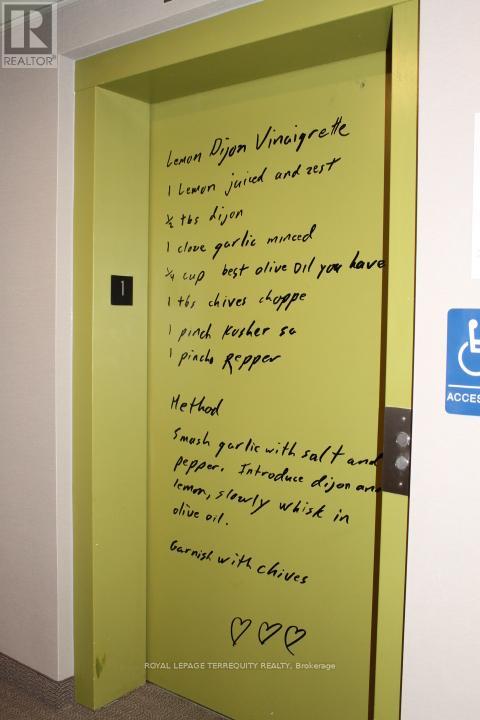 REALTOR®
Lemon Dijon Vinaigrette
1 Lemon juiced and zest
½ tbs dijon
1 clove garlic minced
¼ cup best olive oil you have
1 tbs chives choppe
1 pinch Kosher sa
1 pinch Pepper
Method
Smash garlic with salt and
pepper. Introduce dijon and
lemon, slowly whisk in
olive oil.
Garnish with chives
1
ACCES
ROYAL LEPAGE TERREQUITY REALTY, Brokerage